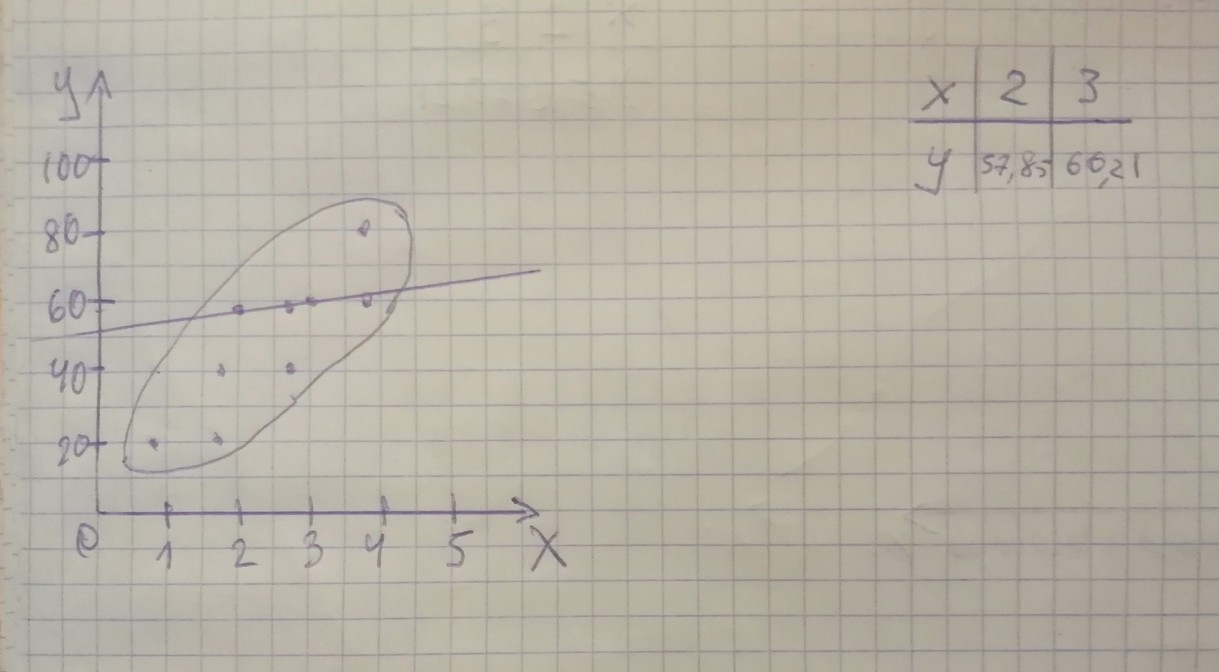 y
100
80
60
40
20
0 1 2 3 4 5 X
x 2 3
y 57,85 60,21